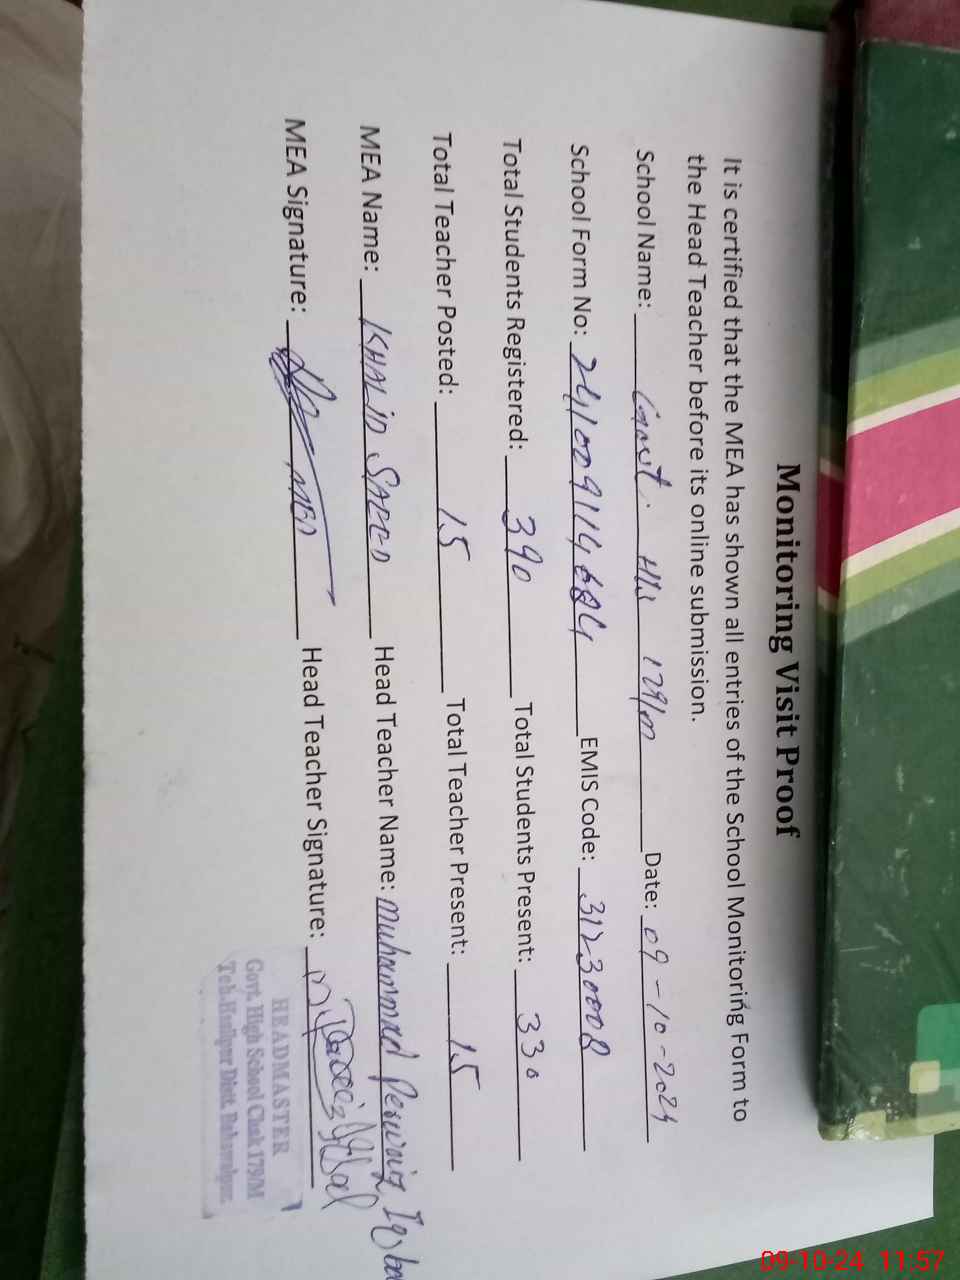 Monitoring Visit Proof
It is certified that the MEA has shown all entries of the School Monitoring Form to
the Head Teacher before its online submission.
School Name: Govt. HS 179/M Date: 09-10-2024
School Form No: 241009114684 EMIS Code: 31230008
Total Students Registered: 390 Total Students Present: 330
Total Teacher Posted: 15 Total Teacher Present: 15
MEA Name: KHALID SAEED Head Teacher Name: Muhammad Perwaiz Iqbal
MEA Signature: MEA Head Teacher Signature:
HEADMASTER
Govt. High School Chak 179/M
Teh. Hasilpur Distt. Bahawalpur.
09-10-24 11:57